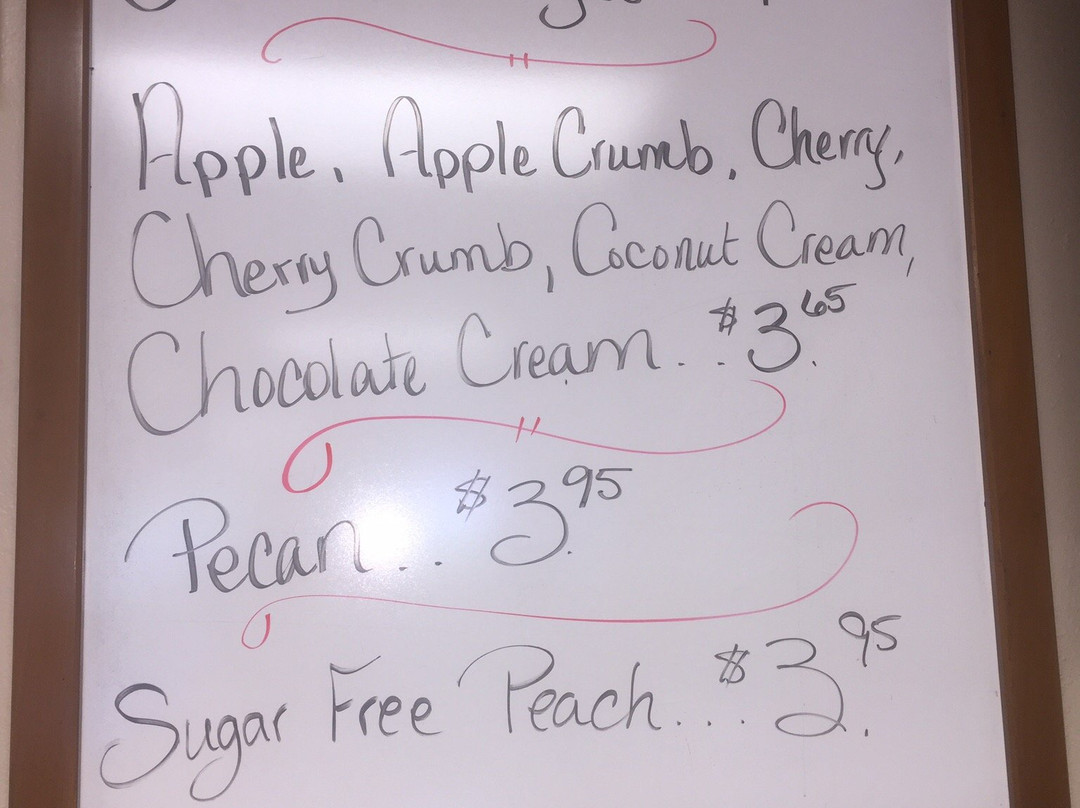 Apple, Apple Crumb, Cherry,
Cherry Crumb, Coconut Cream,
Chocolate Cream... $3.65
Pecan... $3.95
Sugar Free Peach... $3.95